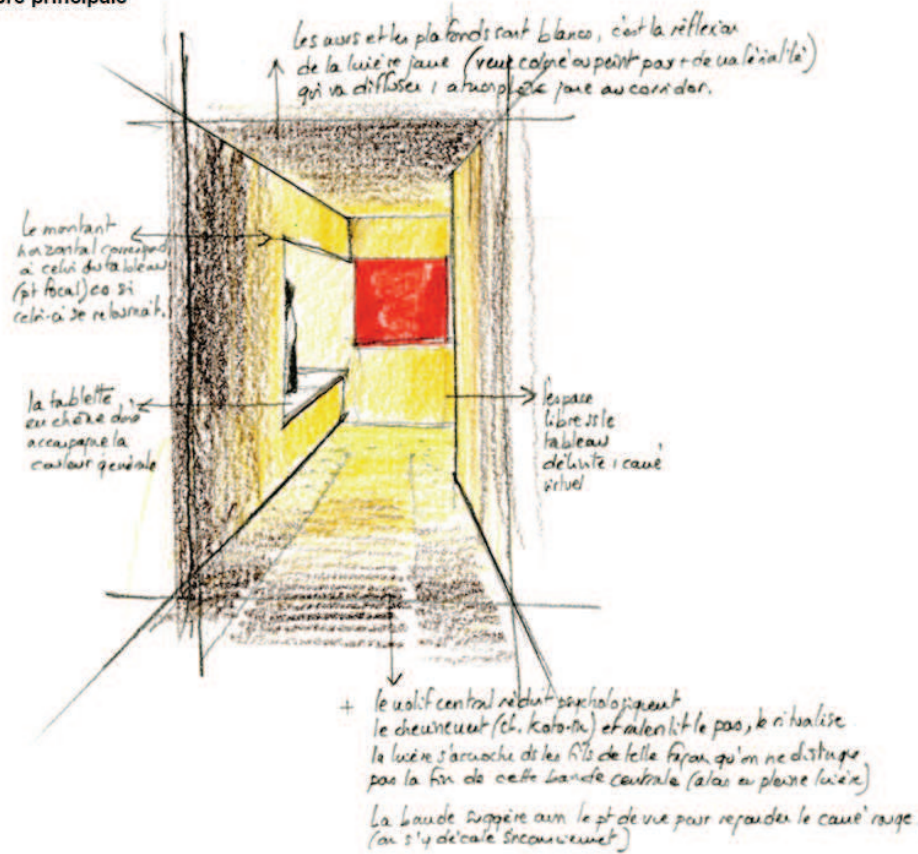 re principale
Les murs et les plafonds sont blancs, c'est la réflexion
de la lumière jaune (verre coloré ou peint pas + de matérialité)
qui va diffuser 1 atmosphère jaune au corridor.
Le montant
horizontal correspond
à celui du tableau
(pt focal) co si
celui-ci se retournait.
la tablette
en chêne doré
accompagne la
couleur générale
l'espace
libre ss le
tableau
délimite 1 carré
virtuel
+ le motif central réduit psychologiquemt
le cheminement (cf. ) et ralentit le pas, le ritualise
la lumière s'accroche ds les fils de telle façon qu'on ne distingue
pas la fin de cette bande centrale (alors en pleine lumière)
La bande suggère aussi le pt de vue pour regarder le carré rouge
(on s'y décale inconsciemment)